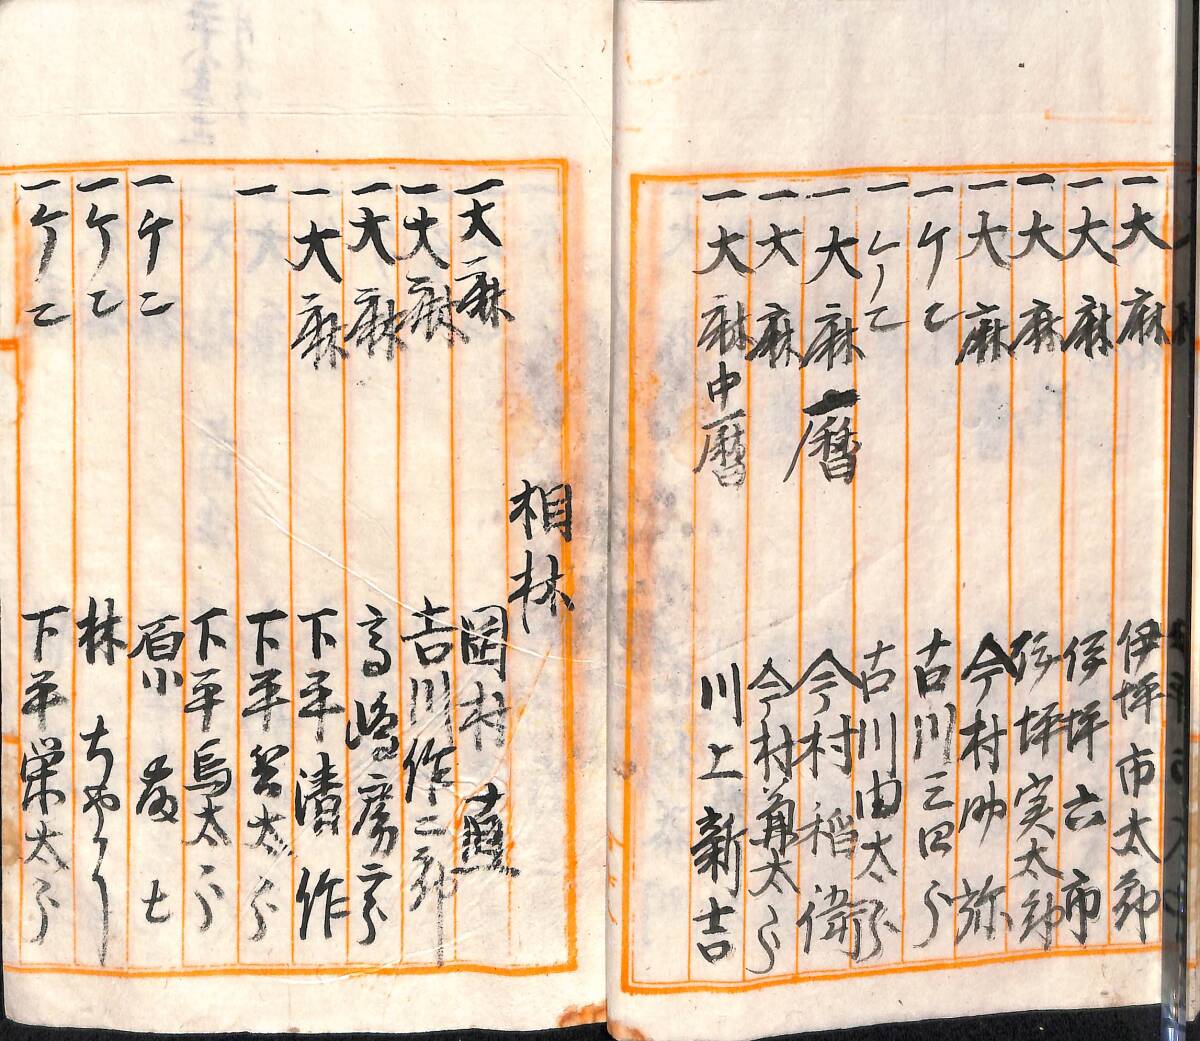 一大麻 伊坪市太郎
一大麻 伊坪六市
一大麻 伊坪実太郎
一大麻 今村助弥
一ケ乙 古川三四郎
一ケ乙 古川由太郎
一大麻 一暦 今村稲
一大麻 今村 太郎
一大麻 中暦 川上新吉
相林
一大麻 岡村 直
一大麻 吉川作二郎
一大麻 高嶋
一大麻 下平清作
一 下平 太郎
下平 太郎
一ケ乙 原 七
一ケ乙 林
一ケ乙 下平栄太郎